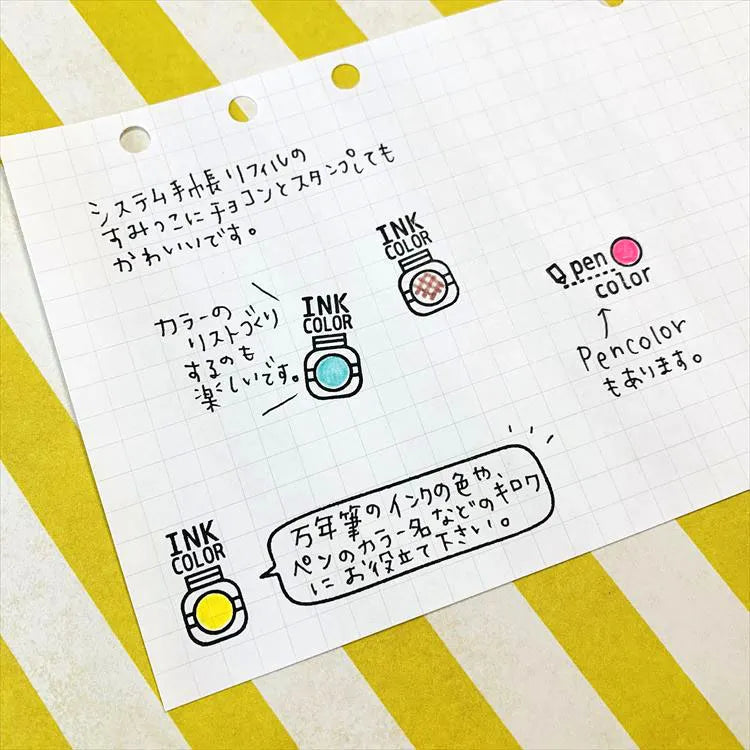 システム手帳リフィルの
すみっこにチョコンとスタンプしても
かわいいです。
INK
COLOR
pen
color
カラーの
リストづくり
するのも
楽しいです。
INK
COLOR
↑
Pencolor
もあります。
INK
COLOR
万年筆のインクの色や、
ペンのカラー名などのキロク
にお役立て下さい。